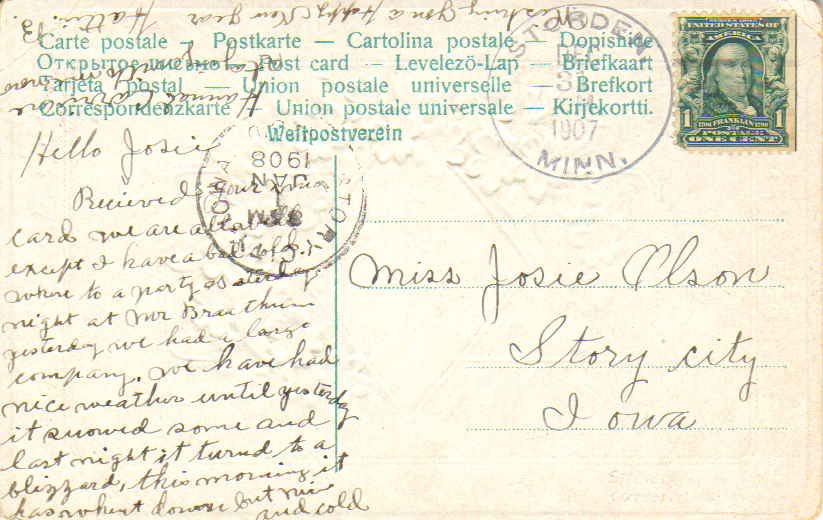 Wishing You a Happy New Year
Hattie.
Carte postale – Postkarte – Cartolina postale – Dopisnice
Открытое письмо – Post card – Levelező-Lap – Briefkaart
Tarjeta postal – Union postale universelle – Brefkort
Correspondenzkarte – Union postale universale – Kirjekortti.
Weltpostverein
STORDEN
31
1907
MINN.
UNITED STATES OF AMERICA
FRANKLIN
1 1
POSTAGE
ONE CENT
STORY CITY
IOWA
JAN
1908
Hello Josie
Recieved your
card we are all well
except I have a bad cold.
where to a party as sterday
night at Mr
yesterday we had a large
company. we have had
nice weather until yesterday
it snowed some and
last night it turnd to a
blizzard, this morning it
has whent down but nice
and cold
Miss Josie Olson
Story city
Iowa